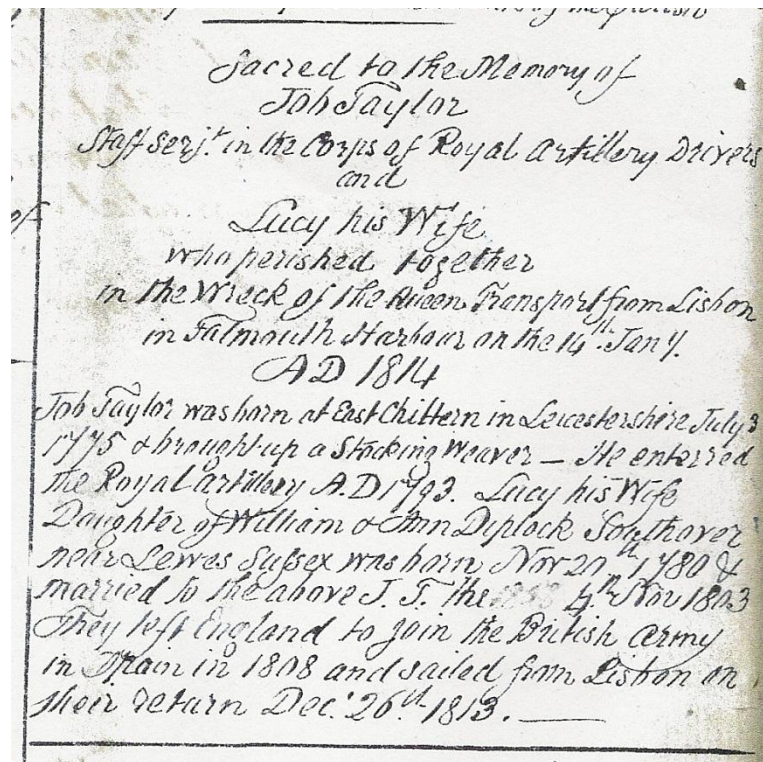 Sacred to the Memory of
Job Taylor
Staff Serjt. in the Corps of Royal Artillery Drivers
and
of
Lucy his Wife
who perished together
in the Wreck of the Queen Transport from Lisbon
in Falmouth Harbour on the 14th Jany.
AD 1814
Job Taylor was born at East Chittern in Leicestershire July 3
1775 & brought up a Stocking Weaver — He enterred
the Royal Artillery A.D 1793. Lucy his Wife
Daughter of William & Ann Diplock Southover
near Lewes Sussex was born Nov 20th 1780 &
married to the above J. T. the 4th Nov 1803
They left England to join the British Army
in Spain in 1808 and sailed from Lisbon on
their return Dec.r 26th 1813. —